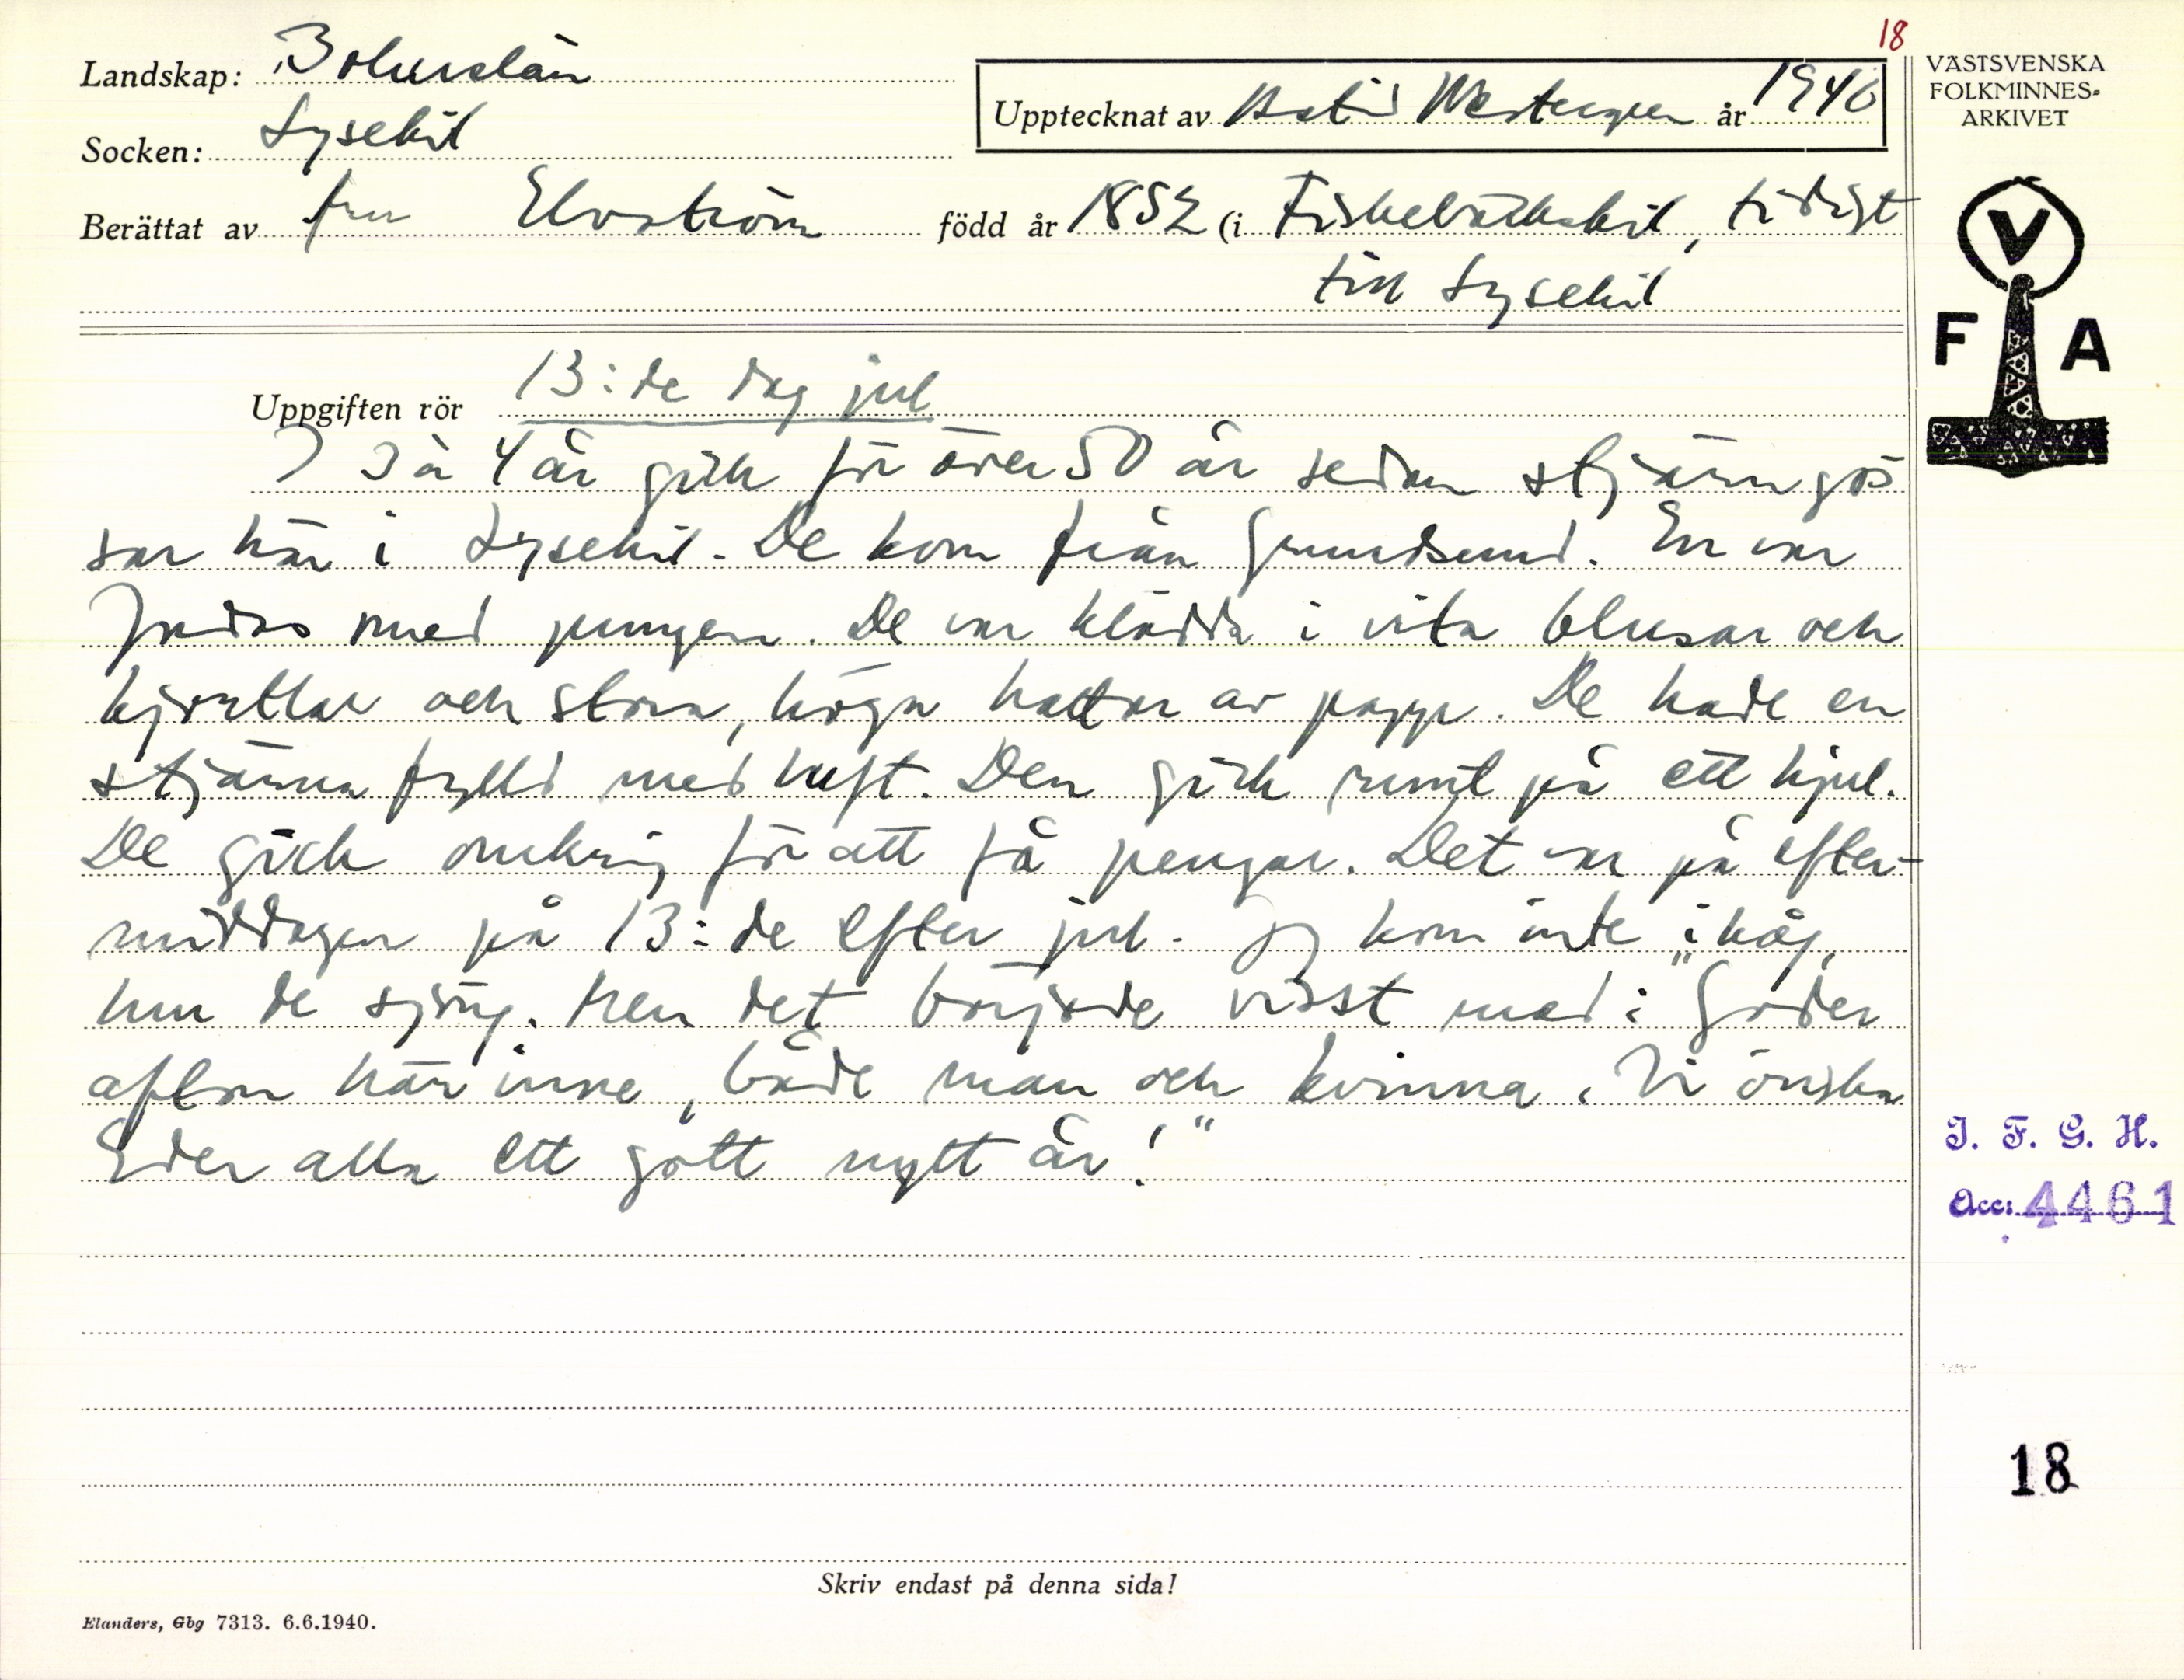 18
Landskap: Bohuslän
Socken: Lysekil
Upptecknat av Astrid Westergren år 1940
Berättat av fru Elvström född år 1852 (i Fiskebäckskil, tidigt
till Lysekil
Uppgiften rör 13:de dag jul
I 3 à 4 år gick för över 50 år sedan stjärngos
sar här i Lysekil. De kom från Grundsund. En var
Judas med pungen. De var klädda i vita blusar och
kjortlar och stora, höga hattar av papp. De hade en
stjärna fylld med luft. Den gick runt på ett hjul.
De gick omkring för att få pengar. Det var på efter-
middagen på 13:de efter jul. Jag kom inte ihåg,
hur de sjöng. Men det började visst med: "Goder
afton här inne, både man och kvinna. Vi önska
Eder alla ett gott nytt år!"
Skriv endast på denna sida!
Elanders, Gbg 7313. 6.6.1940.
VÄSTSVENSKA
FOLKMINNES-
ARKIVET
V
F A
I. F. G. H.
Acc: 4461
18